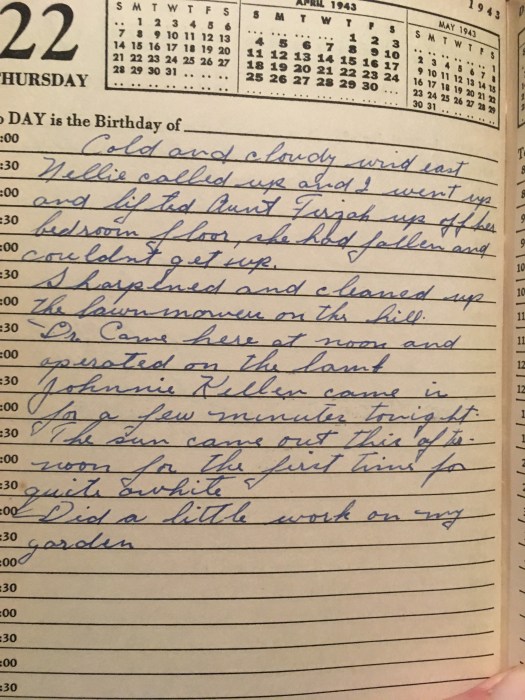 22
THURSDAY
S M T W T F S
. . 1 2 3 4 5 6
7 8 9 10 11 12 13
14 15 16 17 18 19 20
21 22 23 24 25 26 27
28 29 30 31 . . . .
APRIL 1943
S M T W T F S
. . . . . . . . 1 2 3
4 5 6 7 8 9 10
11 12 13 14 15 16 17
18 19 20 21 22 23 24
25 26 27 28 29 30 . .
1943
MAY 1943
S M T W T F S
2 3 4 5 6 7 8
9 10 11 12 13 14 15
16 17 18 19 20 21 22
23 24 25 26 27 28 29
30 31 . . . . . . . .
DAY is the Birthday of
:00 Cold and cloudy wind east
:30 Nellie called up and I went up
:00 and lifted Aunt Tirzah up off her
:30 bedroom floor, she had fallen and
:00 couldnt get up.
:30 Sharpened and cleaned up
:00 the lawnmower on the hill.
:30 Dr. Came here at noon and
:00 operated on the lamb
:30 Johnnie Kellen came in
:00 for a few minutes tonight.
:30 The sun came out this after-
:00 noon for the first time for
:30 quite awhile
:00 Did a little work on my
:30 garden
:00
:30
:00
:30
:00
:30